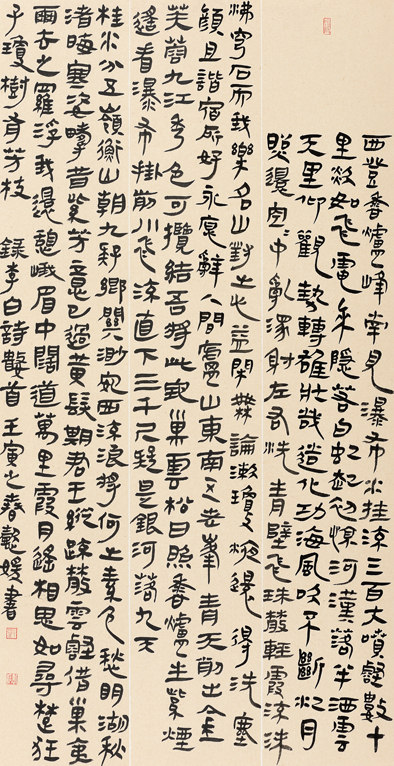 西登香爐峰南見瀑布水挂流三百丈噴壑數十
里欻如飛電來隱若白虹起初驚河漢落半灑雲
天里仰觀勢轉雄壯哉造化功海風吹不斷江月
照還空〻中亂潈射左右洗青壁飛珠散輕霞流沫
沸穹石而我樂名山對之心益閑無論漱瓊液還得洗塵
顏且諧宿所好永願辭人間廬山東南五老峯青天削出金
芙蓉九江秀色可攬結吾將此地巢雲松日照香爐生紫煙
遙看瀑布掛前川飛流直下三千尺疑是銀河落九天
桂水分五嶺衡山朝九疑鄉關渺安西流浪將何之素色愁明湖秋
渚晦寒姿疇昔紫芳意已過黃髮期君王縱疎散雲壑借巢夷
爾去之羅浮我還憩峨眉中闊道萬里霞月遙相思如尋楚狂
子瓊樹有芳枝 錄李白詩數首壬寅之春懿媛書